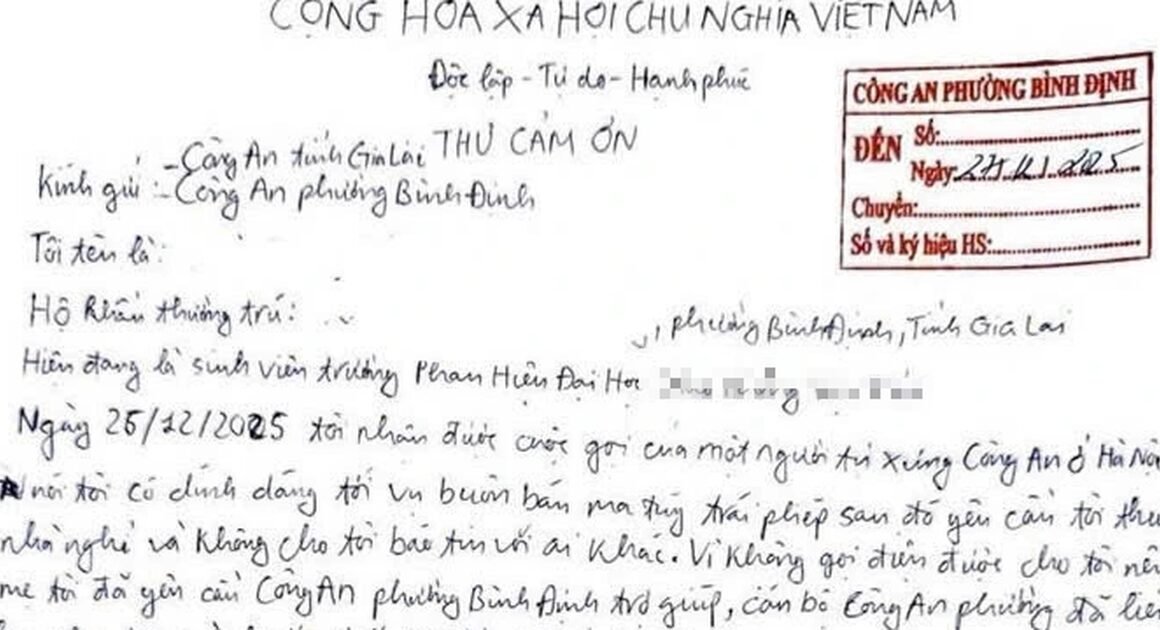 CỘNG HÒA XÃ HỘI CHỦ NGHĨA VIỆT NAM
Độc lập - Tự do - Hạnh phúc
THƯ CẢM ƠN
CÔNG AN PHƯỜNG BÌNH ĐỊNH
ĐẾN
Số:
Ngày: 27/12/2025
Chuyển:
Số và ký hiệu HS:
Kính gửi: - Công An tỉnh Gia Lai
- Công An phường Bình Định
Tôi tên là:
Hộ khẩu thường trú:
, phường Bình Định, Tỉnh Gia Lai
Hiện đang là sinh viên trường Phân Hiệu Đại Học
Ngày 26/12/2025 tôi nhận được cuộc gọi của một người tự xưng Công An ở Hà Nội
nói tôi có dính dáng tới vụ buôn bán ma túy trái phép sau đó yêu cầu tôi thuê
nhà nghỉ và không cho tôi báo tin với ai khác. Vì không gọi điện được cho tôi nên
mẹ tôi đã yêu cầu Công An phường Bình Định trợ giúp, cán bộ Công An phường đã liên